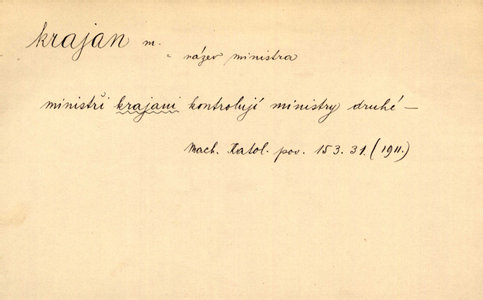 krajan m.
název ministra
ministři krajani kontrolují ministry druhé —
Mach. Katol. pov. 153.31. (1911.)